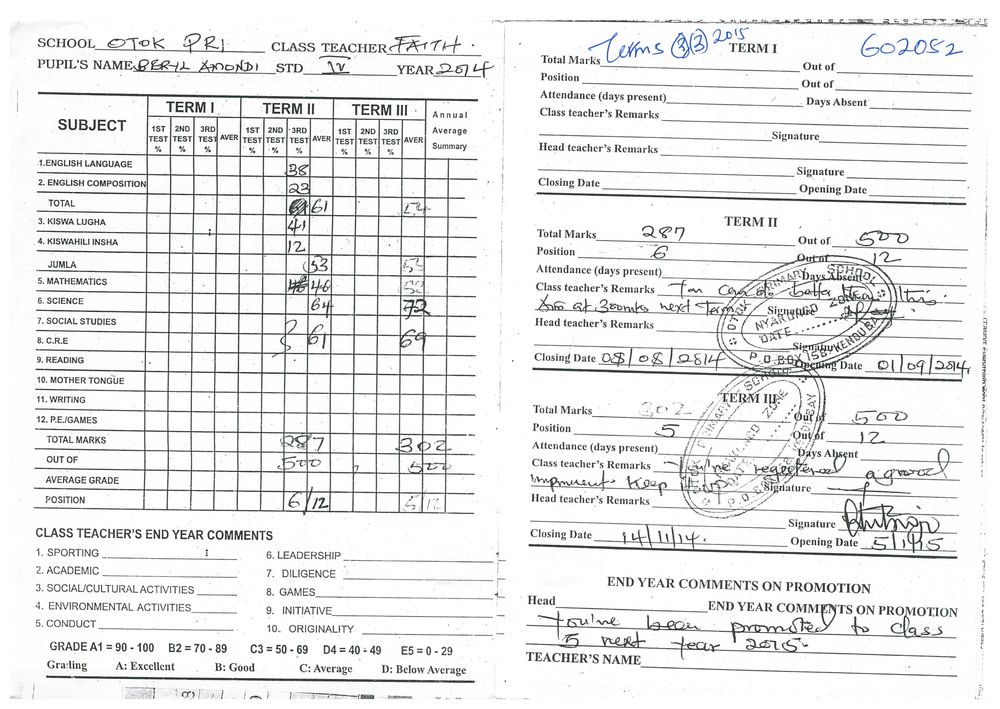 SCHOOL OTOK PRI CLASS TEACHER FAITH.
PUPIL'S NAME BERYL AMONDI STD IV YEAR 2014
SUBJECT TERM I TERM II TERM III Annual Average Summary
1ST TEST % 2ND TEST % 3RD TEST % AVER 1ST TEST % 2ND TEST % 3RD TEST % AVER 1ST TEST % 2ND TEST % 3RD TEST % AVER
1.ENGLISH LANGUAGE 38
2. ENGLISH COMPOSITION 23
TOTAL 61
3. KISWA LUGHA 41
4. KISWAHILI INSHA 12
JUMLA 53 53
5. MATHEMATICS 46
6. SCIENCE 64 72
7. SOCIAL STUDIES
8. C.R.E 61 69
9. READING
10. MOTHER TONGUE
11. WRITING
12. P.E./GAMES
TOTAL MARKS 287 302
OUT OF 500 500
AVERAGE GRADE
POSITION 6/12 5/12
CLASS TEACHER'S END YEAR COMMENTS
1. SPORTING 6. LEADERSHIP
2. ACADEMIC 7. DILIGENCE
3. SOCIAL/CULTURAL ACTIVITIES 8. GAMES
4. ENVIRONMENTAL ACTIVITIES 9. INITIATIVE
5. CONDUCT 10. ORIGINALITY
GRADE A1 = 90 - 100 B2 = 70 - 89 C3 = 50 - 69 D4 = 40 - 49 E5 = 0 - 29
Grading A: Excellent B: Good C: Average D: Below Average
Terms 3 3 2015 TERM I 602052
Total Marks Out of
Position Out of
Attendance (days present) Days Absent
Class teacher's Remarks
Signature
Head teacher's Remarks
Signature
Closing Date Opening Date
TERM II
Total Marks 287 Out of 500
Position 6 Out of 12
Attendance (days present) Days Absent
Class teacher's Remarks You can do better than this.
Aim at 300mks next Term Signature
Head teacher's Remarks
Signature
Closing Date 08/08/2014 Opening Date 01/09/2014.
OTOK PRIMARY SCHOOL
NYAKONGO ZONE
DATE
P.O BOX 158, KENDU BAY
TERM III
Total Marks 302 Out of 500
Position 5 Out of 12
Attendance (days present) Days Absent
Class teacher's Remarks You've registered a good
improvement Keep up Signature
Head teacher's Remarks
Signature
Closing Date 14/11/14. Opening Date 5/1/15
END YEAR COMMENTS ON PROMOTION
Head END YEAR COMMENTS ON PROMOTION
You've been promoted to class
5 next year 2015.
TEACHER'S NAME